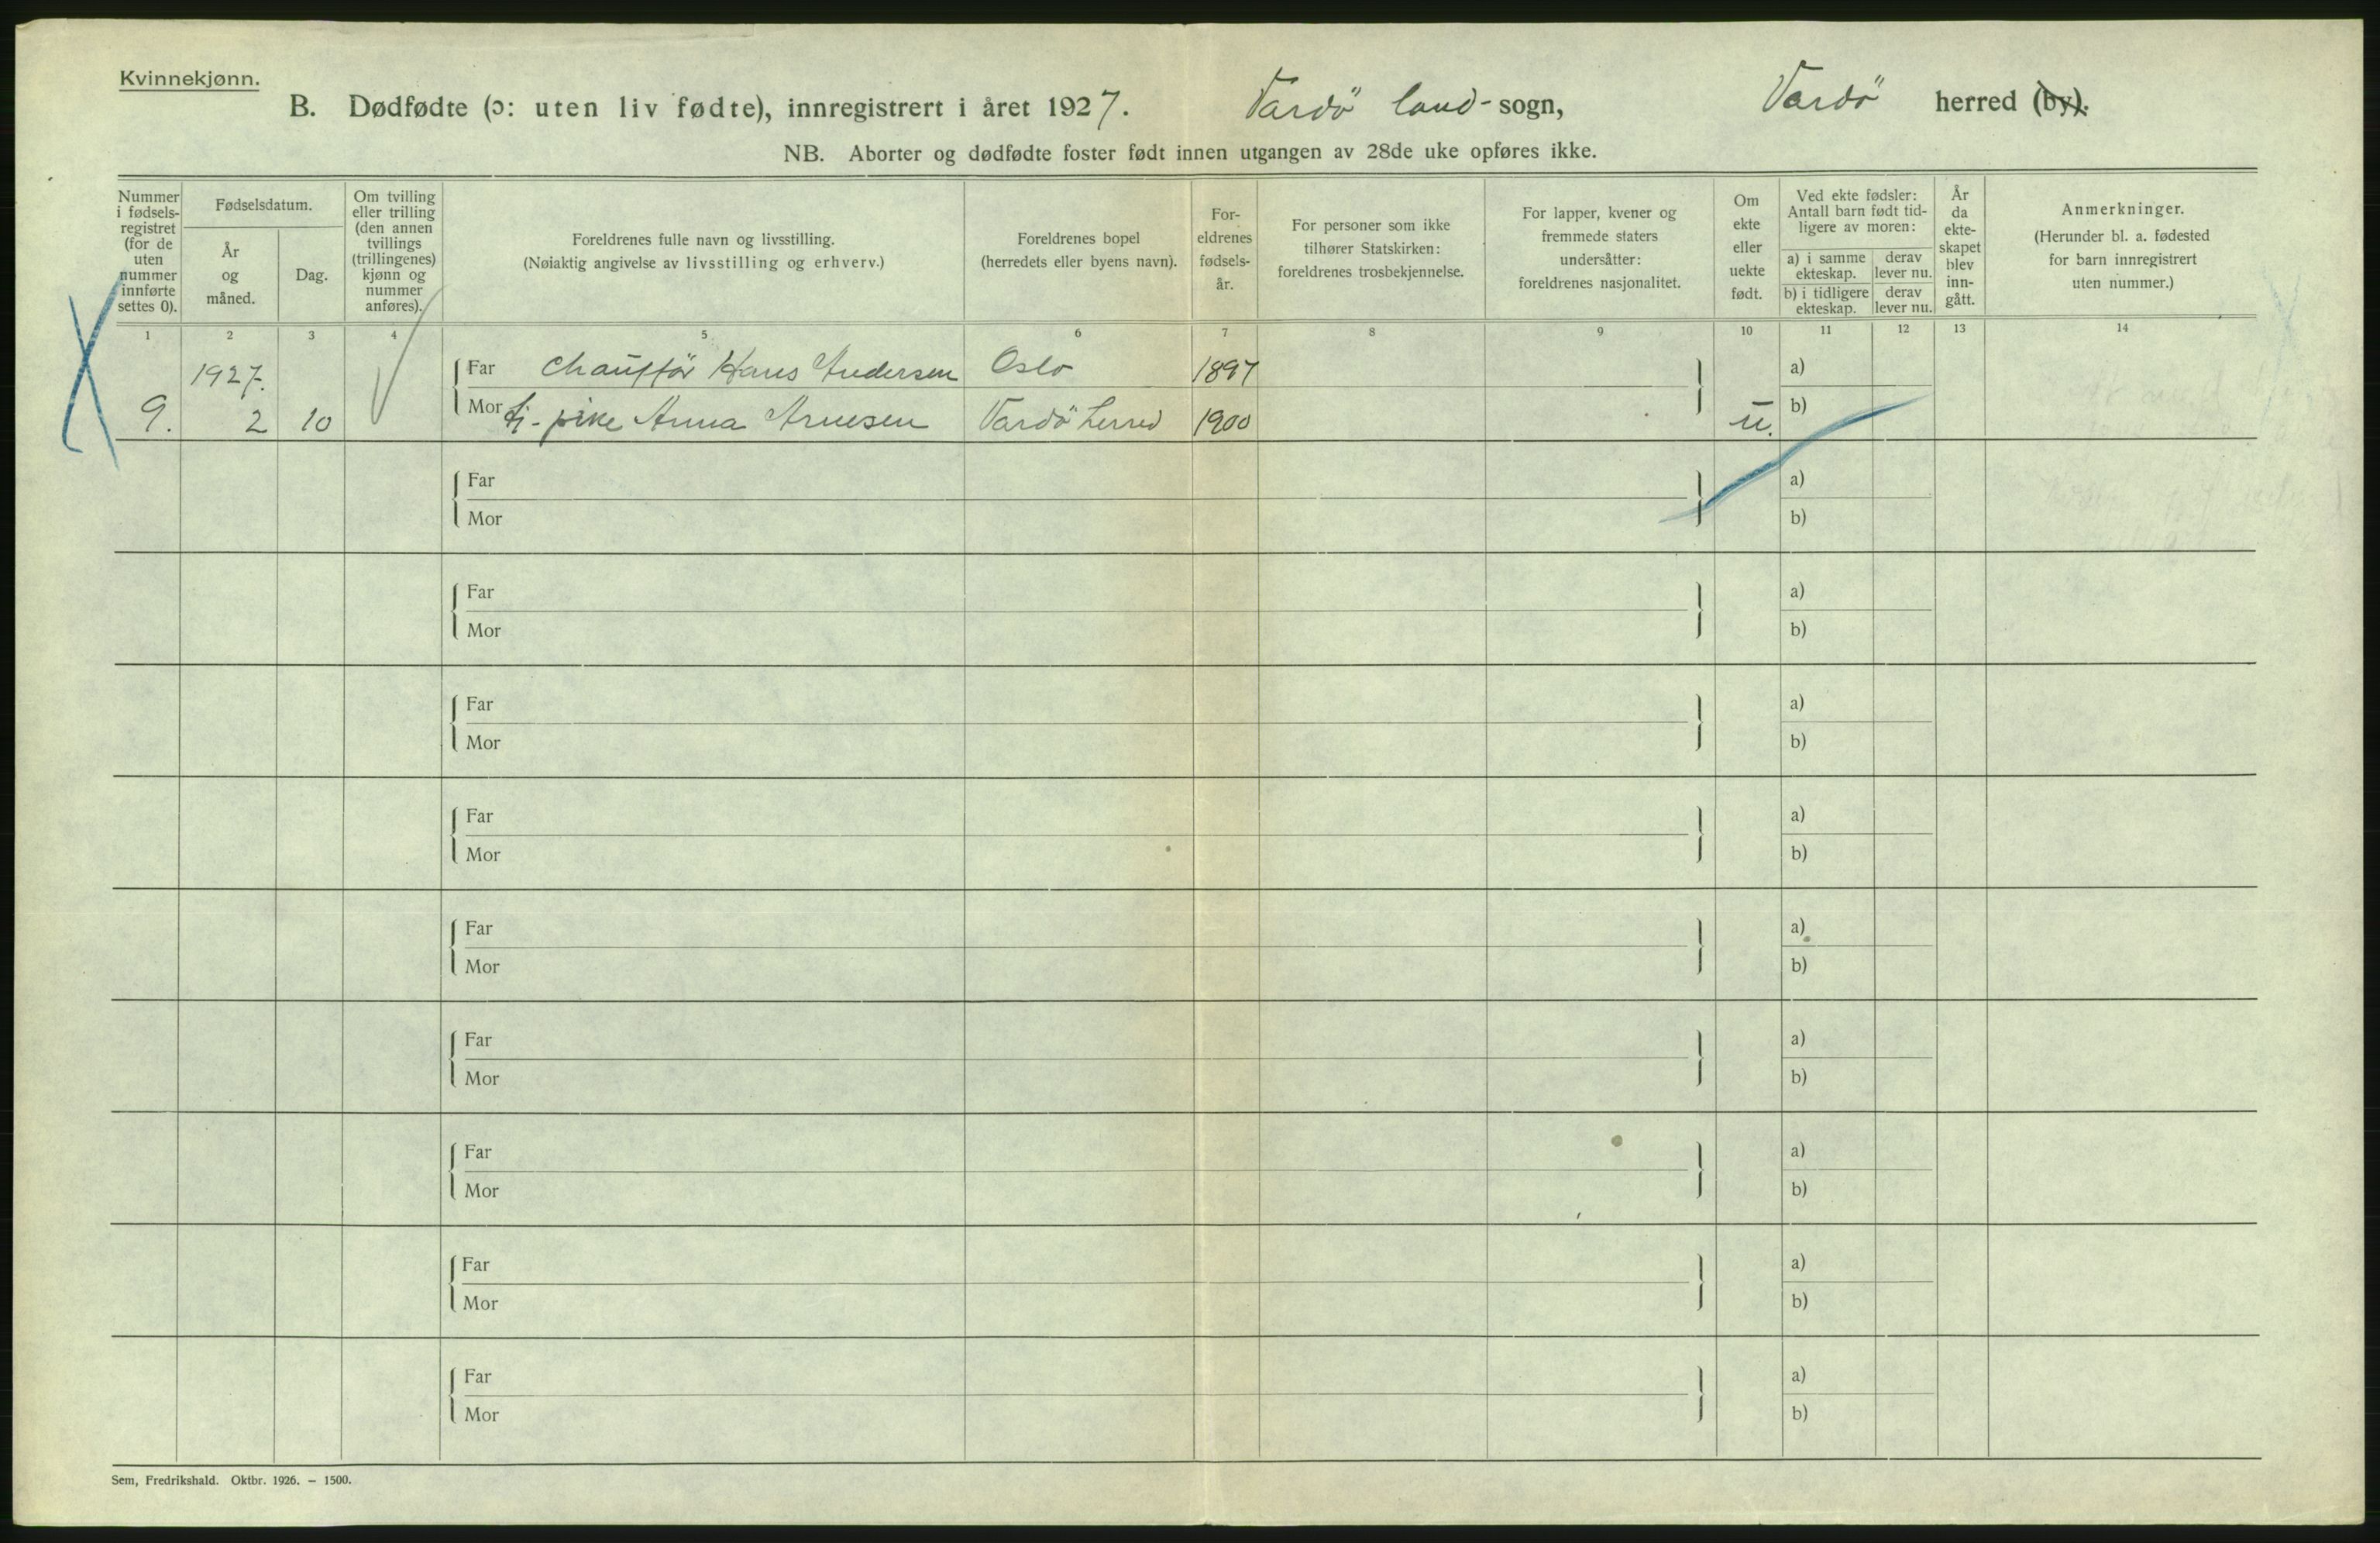 Kvinnekjønn.
B. Dødfødte (ɔ: uten liv fødte), innregistrert i året 1927. Vardö land- sogn, Vardö herred (by).
NB. Aborter og dødfødte foster født innen utgangen av 28de uke opføres ikke.
Nummer
i fødsels-
registret
(for de
uten
nummer
innførte
settes 0).
Fødselsdatum.
År
og
måned.
Dag.
Om tvilling
eller trilling
(den annen
tvillings
(trillingenes)
kjønn og
nummer
anføres).
Foreldrenes fulle navn og livsstilling.
(Nøiaktig angivelse av livsstilling og erhverv.)
Foreldrenes bopel
(herredets eller byens navn).
For-
eldrenes
fødsels-
år.
For personer som ikke
tilhører Statskirken:
foreldrenes trosbekjennelse.
For lapper, kvener og
fremmede staters
undersåtter:
foreldrenes nasjonalitet.
Om
ekte
eller
uekte
født.
Ved ekte fødsler:
Antall barn født tid-
ligere av moren:
a) i samme
ekteskap.
derav
lever nu.
b) i tidligere
ekteskap.
derav
lever nu.
År
da
ekte-
skapet
blev
inn-
gått.
Anmerkninger.
(Herunder bl. a. fødested
for barn innregistrert
uten nummer.)
1 2 3 4 5 6 7 8 9 10 11 12 13 14
1927. Far Chauffør Hans Andersen Oslo 1897 a)
9. 2 10 Mor tj-pike Anna Arnesen Vardö herred 1900 u. b)
Far a)
Mor b)
Far a)
Mor b)
Far a)
Mor b)
Far a)
Mor b)
Far a)
Mor b)
Far a)
Mor b)
Far a)
Mor b)
Far a)
Mor b)
Far a)
Mor b)
Sem, Fredrikshald. Oktbr. 1926. — 1500.